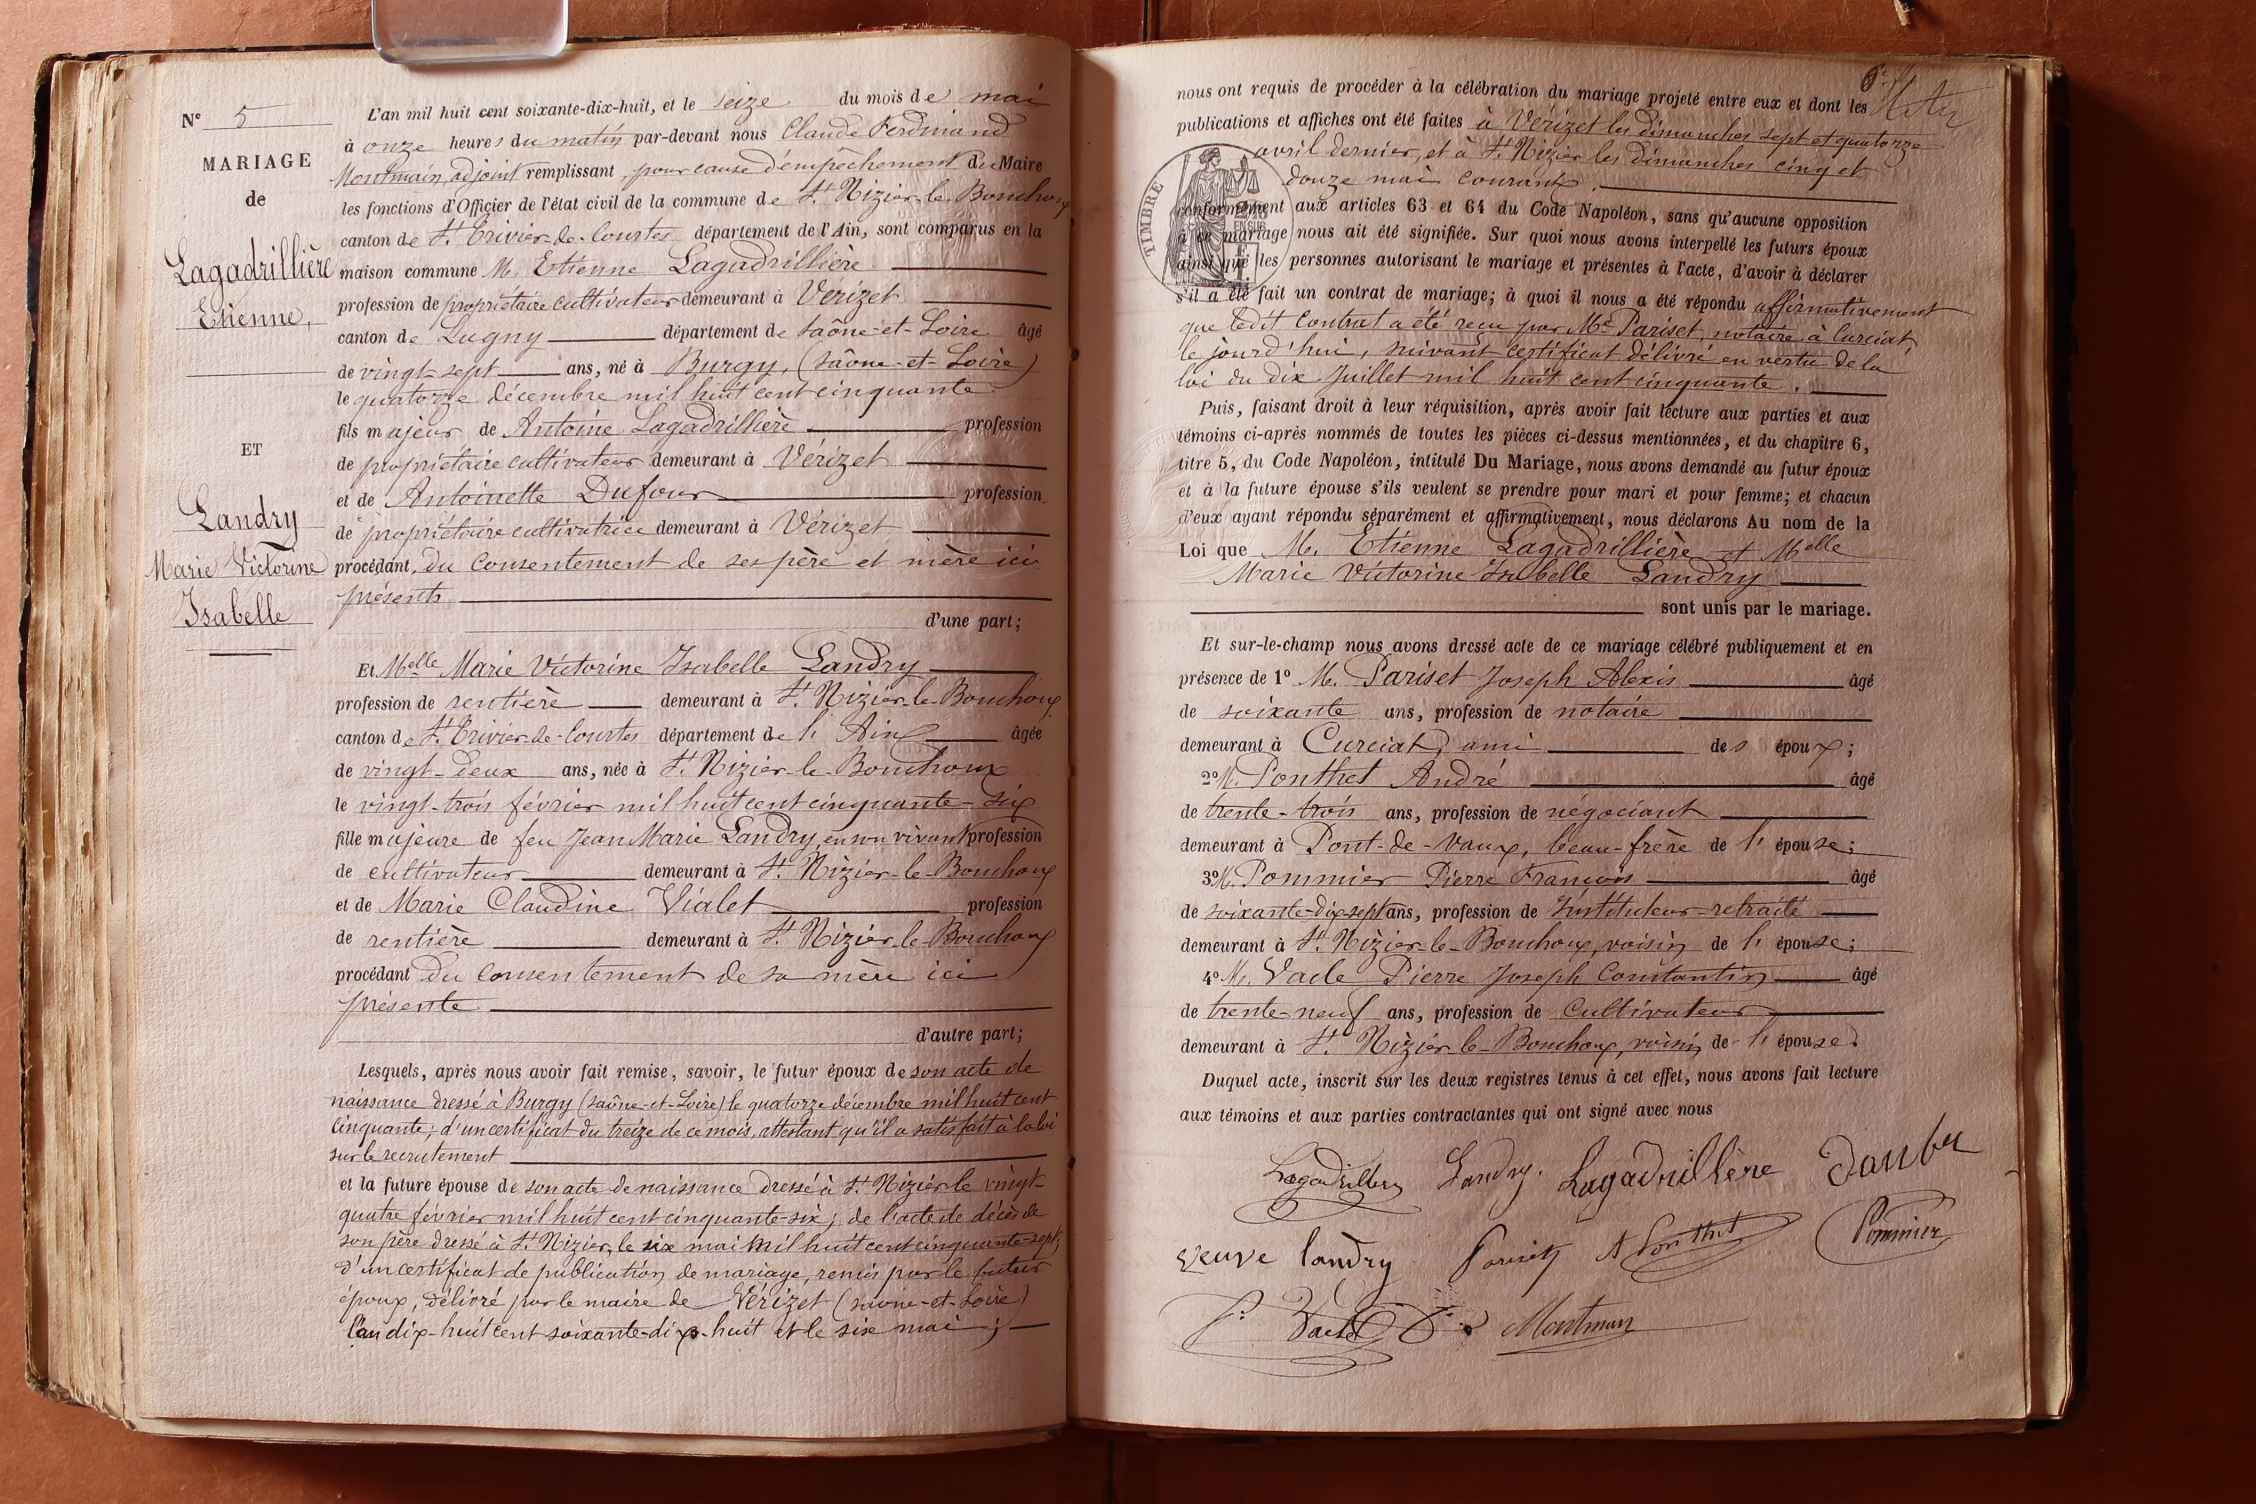 N° 5
MARIAGE
de
Lagadrillière
Etienne,
ET
Landry
Marie Victorine
Isabelle
L'an mil huit cent soixante-dix-huit, et le seize du mois de mai
à onze heures du matin par-devant nous Claude Ferdinand
Montmain, adjoint remplissant, pour cause d'empêchement du Maire
les fonctions d'Officier de l'état civil de la commune de St Nizier-le-Bouchoux
canton de St Trivier-de-Courtes département de l'Ain, sont comparus en la
maison commune M. Etienne Lagadrillière
profession de propriétaire cultivateur demeurant à Verizet
canton de Lugny département de Saône-et-Loire âgé
de vingt-sept ans, né à Burgy, (Saône-et-Loire)
le quatorze décembre mil huit cent cinquante
fils majeur de Antoine Lagadrillière profession
de propriétaire cultivateur demeurant à Vérizet
et de Antoinette Dufour profession
de propriétaire cultivatrice demeurant à Vérizet
procédant du consentement de ses père et mère ici
présents
d'une part;
Et Melle Marie Victorine Isabelle Landry
profession de rentière demeurant à St Nizier-le-Bouchoux
canton de St Trivier-de-Courtes département de l'Ain âgée
de vingt-deux ans, née à St Nizier-le-Bouchoux
le vingt-trois février mil huit cent cinquante-six
fille majeure de feu Jean Marie Landry, en son vivant profession
de cultivateur demeurant à St Nizier-le-Bouchoux
et de Marie Claudine Vialet profession
de rentière demeurant à St Nizier-le-Bouchoux
procédant du consentement de sa mère ici
présente
d'autre part;
Lesquels, après nous avoir fait remise, savoir, le futur époux de son acte de
naissance dressé à Burgy (Saône-et-Loire) le quatorze décembre mil huit cent
cinquante; d'un certificat du treize de ce mois, attestant qu'il a satisfait à la loi
sur le recrutement
et la future épouse de son acte de naissance dressé à St Nizier le vingt-
quatre février mil huit cent cinquante-six; de l'acte de décès de
son père dressé à St Nizier, le six mai mil huit cent cinquante-sept;
d'un certificat de publication de mariage, remis par le futur
époux, délivré par le maire de Vérizet (Saône-et-Loire)
l'an dix-huit cent soixante-dix-huit et le six mai;
nous ont requis de procéder à la célébration du mariage projeté entre eux et dont les
publications et affiches ont été faites à Vérizet les dimanches sept et quatorze
avril dernier, et à St Nizier les dimanches cinq et
douze mai courant.
TIMBRE
conformément aux articles 63 et 64 du Code Napoléon, sans qu'aucune opposition
à ce mariage nous ait été signifiée. Sur quoi nous avons interpellé les futurs époux
ainsi que les personnes autorisant le mariage et présentes à l'acte, d'avoir à déclarer
s'il a été fait un contrat de mariage; à quoi il nous a été répondu affirmativement
que ledit contrat a été reçu par Me Pariset, notaire à Curciat,
le jourd'hui, suivant certificat délivré en vertu de la
loi du dix Juillet mil huit cent cinquante.
Puis, faisant droit à leur réquisition, après avoir fait lecture aux parties et aux
témoins ci-après nommés de toutes les pièces ci-dessus mentionnées, et du chapitre 6,
titre 5, du Code Napoléon, intitulé Du Mariage, nous avons demandé au futur époux
et à la future épouse s'ils veulent se prendre pour mari et pour femme; et chacun
d'eux ayant répondu séparément et affirmativement, nous déclarons Au nom de la
Loi que M. Etienne Lagadrillière et Melle
Marie Victorine Isabelle Landry
sont unis par le mariage.
Et sur-le-champ nous avons dressé acte de ce mariage célébré publiquement et en
présence de 1° M. Pariset Joseph Alexis âgé
de soixante ans, profession de notaire
demeurant à Curciat, ami des époux;
2° M. Ponthet André âgé
de trente-trois ans, profession de négociant
demeurant à Pont-de-Vaux, beau-frère de l'épouse;
3° M. Pommier Pierre François âgé
de soixante-dix-sept ans, profession de Instituteur-retraité
demeurant à St Nizier-le-Bouchoux, voisin de l'épouse;
4° M. Vacle Pierre Joseph Constantin âgé
de trente-neuf ans, profession de Cultivateur
demeurant à St Nizier-le-Bouchoux, voisin de l'épouse.
Duquel acte, inscrit sur les deux registres tenus à cet effet, nous avons fait lecture
aux témoins et aux parties contractantes qui ont signé avec nous
Lagadrillière Landry. Lagadrillère
veuve landry Pariset A Ponthet Pommier
Vacle Montmain